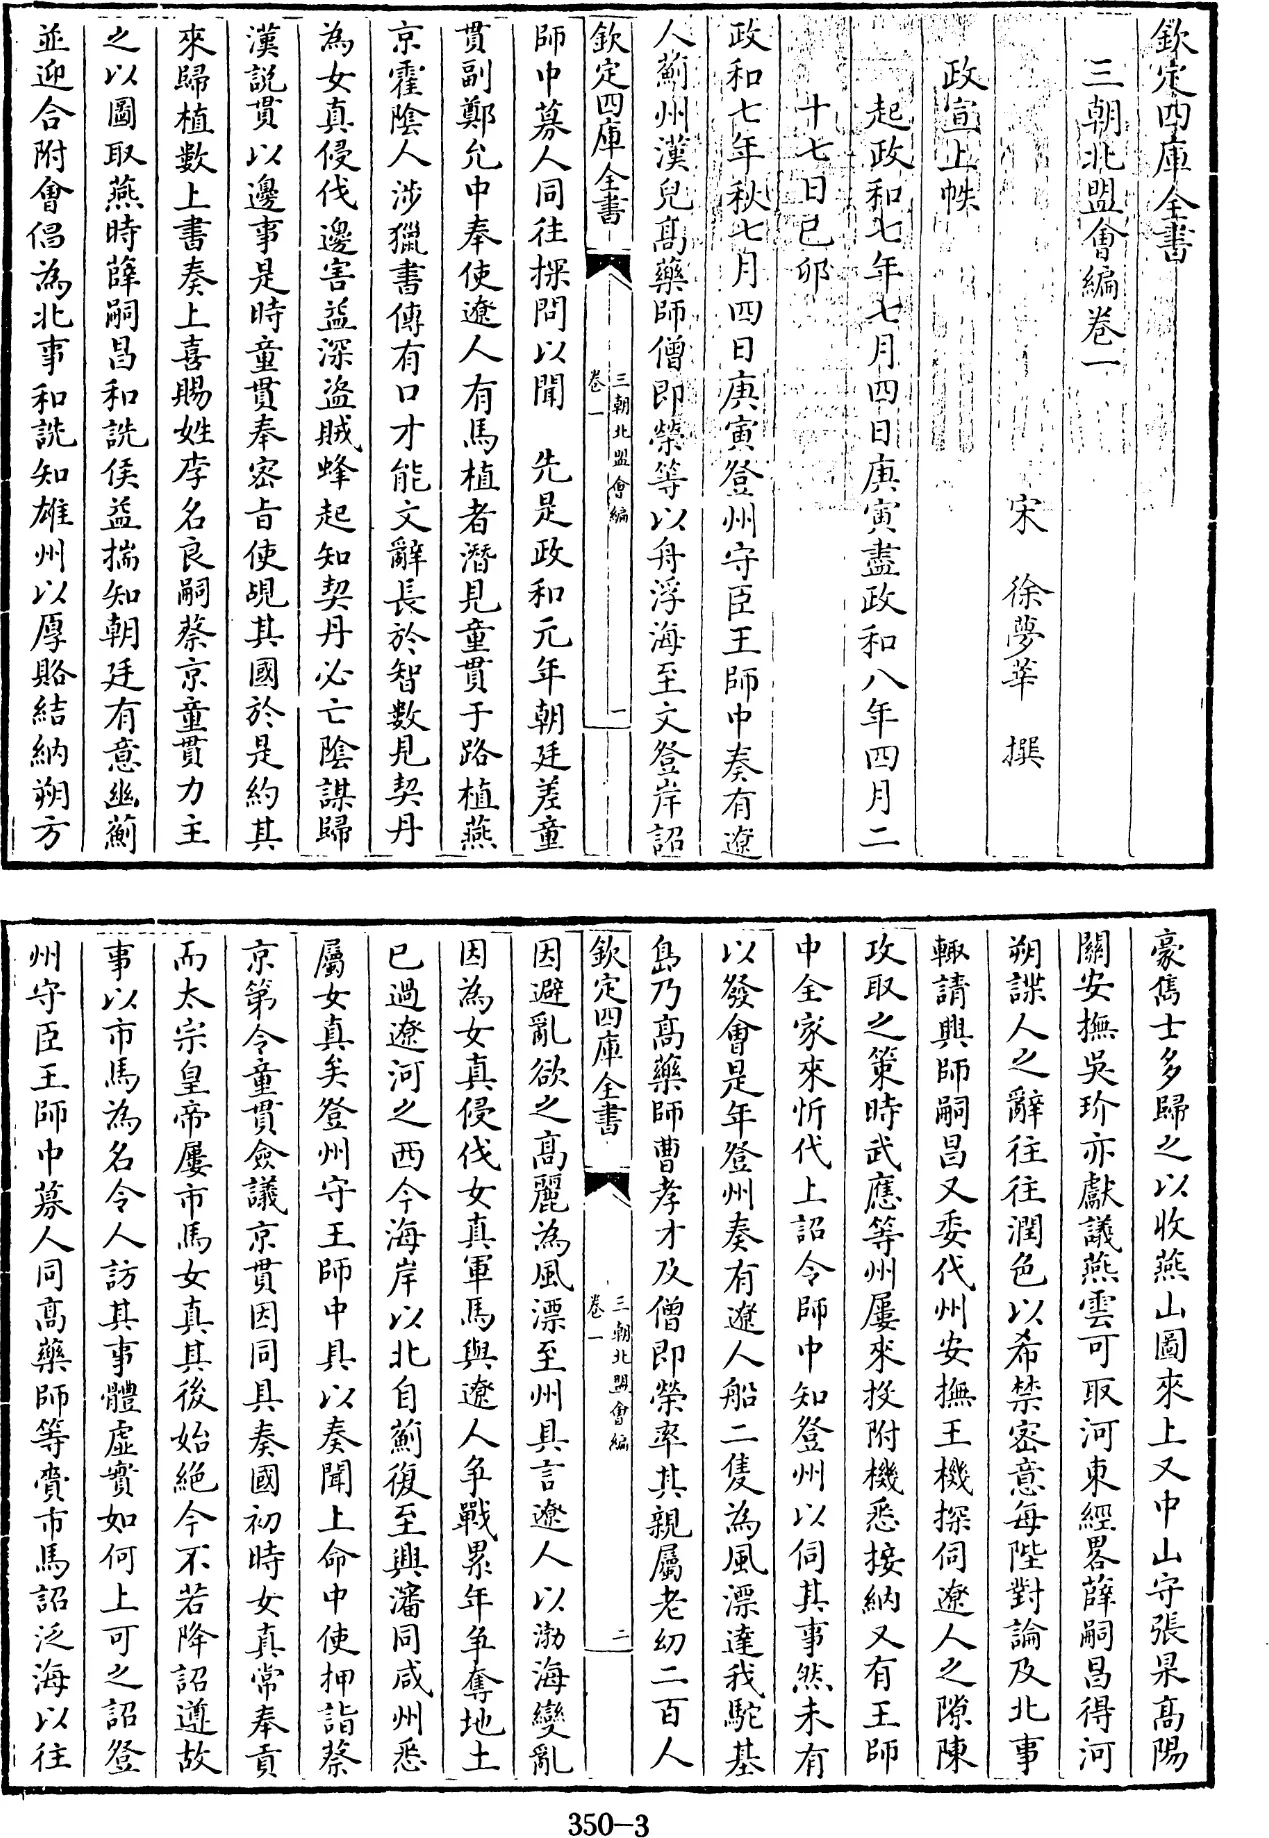 欽定四庫全書
三朝北盟會編卷一
宋 徐夢莘 撰
政宣上帙一
起政和七年七月四日庚寅盡政和八年四月二
十七日己卯
政和七年秋七月四日庚寅登州守臣王師中奏有遼
人薊州漢兒高藥師僧即榮等以舟浮海至文登岸詔
欽定四庫全書
三朝北盟會編
卷一
一
師中募人同往探問以聞 先是政和元年朝廷差童
貫副鄭允中奉使遼人有馬植者潛見童貫于路植燕
京霍陰人涉獵書傳有口才能文辭長於智數見契丹
為女真侵伐邊害益深盜賊蜂起知契丹必亡陰謀歸
漢說貫以邊事是時童貫奉密旨使覘其國於是約其
來歸植數上書奏上喜賜姓李名良嗣蔡京童貫力主
之以圖取燕時薛嗣昌和詵侯益揣知朝廷有意幽薊
並迎合附會倡為北事和詵知雄州以厚賂結納朔方
豪儁士多歸之以收燕山圖來上又中山守張杲高陽
關安撫吳玠亦獻議燕雲可取河東經畧薛嗣昌得河
朔諜人之辭往往潤色以希禁密意每陛對論及北事
輒請興師嗣昌又委代州安撫王機探伺遼人之隙陳
攻取之策時武應等州屢來投附機悉接納又有王師
中全家來忻代上詔令師中知登州以伺其事然未有
以發會是年登州奏有遼人船二隻為風漂達我駝基
島乃高藥師曹孝才及僧即榮率其親屬老幼二百人
欽定四庫全書
三朝北盟會編
卷一
二
因避亂欲之高麗為風漂至州具言遼人以渤海變亂
因為女真侵伐女真軍馬與遼人爭戰累年爭奪地土
已過遼河之西今海岸以北自薊復至興瀋同咸州悉
屬女真矣登州守王師中具以奏聞上命中使押詣蔡
京第令童貫僉議京貫因同具奏國初時女真常奉貢
而太宗皇帝屢市馬女真其後始絕今不若降詔遵故
事以市馬為名令人訪其事體虛實如何上可之詔登
州守臣王師中募人同高藥師等齎市馬詔泛海以往
350-3